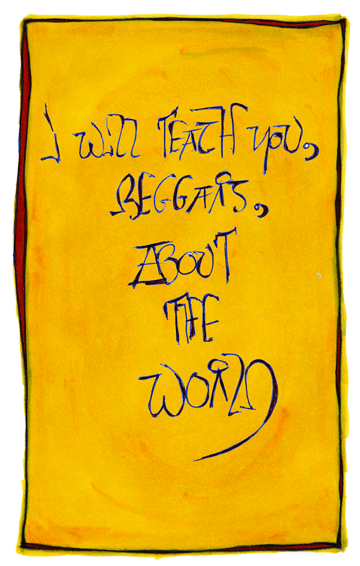 I will TEACH you,
BEGGARS,
ABOUT
THE
WORLD